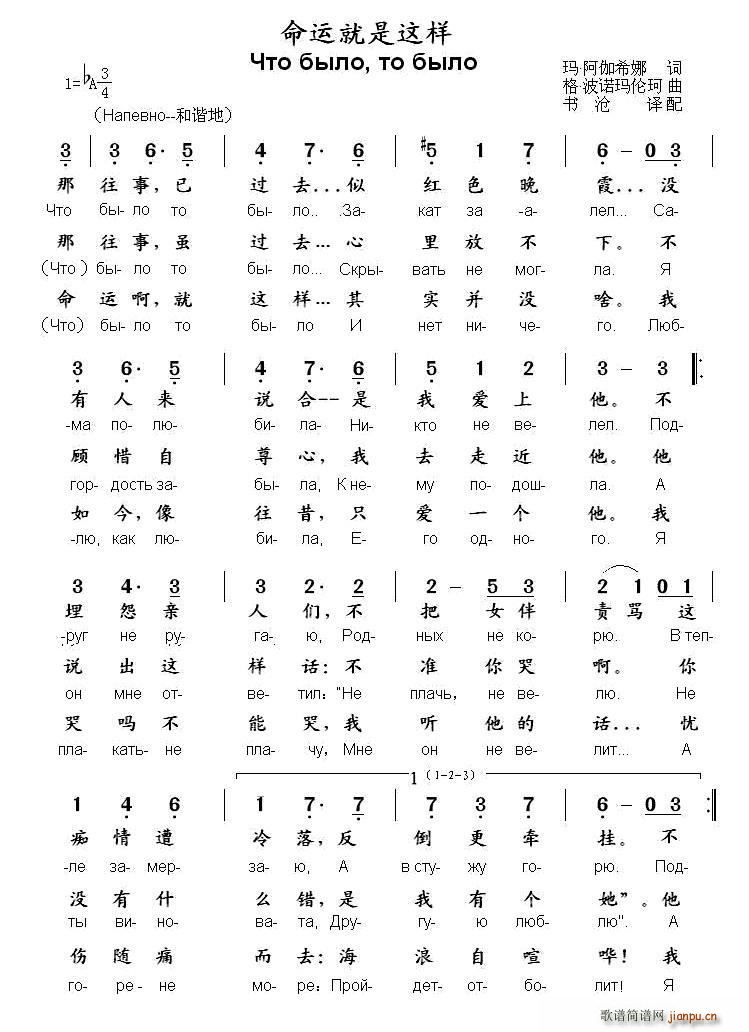 命运就是这样
Что было, то было
1=♭A 3/4
玛·阿伽希娜 词
格·波诺玛伦珂 曲
书 沧 译配
（Напевно--和谐地）
3 | 3 6· 5 | 4 7· 6 | #5 1 7 | 6 – 0 3 |
那 往 事,已 过 去...似 红 色 晚 霞...没
Что бы- ло то бы- ло.. .За- кат за -а- лел... Са-
那 往 事,虽 过 去...心 里 放 不 下。不
(Что) бы- ло то бы- ло... Скры- вать не мог- ла. Я
命 运 啊,就 这 样...其 实 并 没 啥。我
(Что) бы- ло то бы- ло И нет ни- че- го. Люб-
3 6· 5 | 3 7· 6 | 5 1 2 | 3 – 3 :
有 人 来 说 合--是 我 爱 上 他。不
-ма по- лю- би- ла- Ни- кто не ве- лел. Под-
顾 惜 自 尊 心,我 去 走 近 他。他
гор- дость за- бы- ла, К не- му по- дош- ла. А
如 今,像 往 昔,只 爱 一 个 他。我
-лю, как лю- би- ла, Е- го од- но- го. Я
3 4· 3 | 3 2· 2 | 2 – 5 3 | 2 1 0 1 |
埋 怨 亲 人 们,不 把 女 伴 责 骂 这
-руг не ру- га- ю, Род- ных не ко- рю. В теп-
说 出 这 样 话:不 准 你 哭 啊。你
он мне от- ве- тил: "Не плачь, не ве- лю. Не
哭 吗 不 能 哭,我 听 他 的 话... 忧
пла- кать- не пла- чу, Мне он не ве- лит... А
1 (1-2-3)
1 4 6 | 1 7· 7 | 7 3 7 | 6 – 0 3 :
痴 情 遭 冷 落,反 倒 更 牵 挂。不
-ле за- мер- за- ю, А в сту- жу го- рю. Под-
没 有 什 么 错,是 我 有 个 她”。他
ты ви- но- ва- та, Дру- гу- ю люб- лю". А
伤 随 痛 而 去:海 浪 自 喧 哗! 我
го- ре- не мо- ре: Прой- дет-от- бо- лит! Я
歌谱简谱网
jianpu.cn